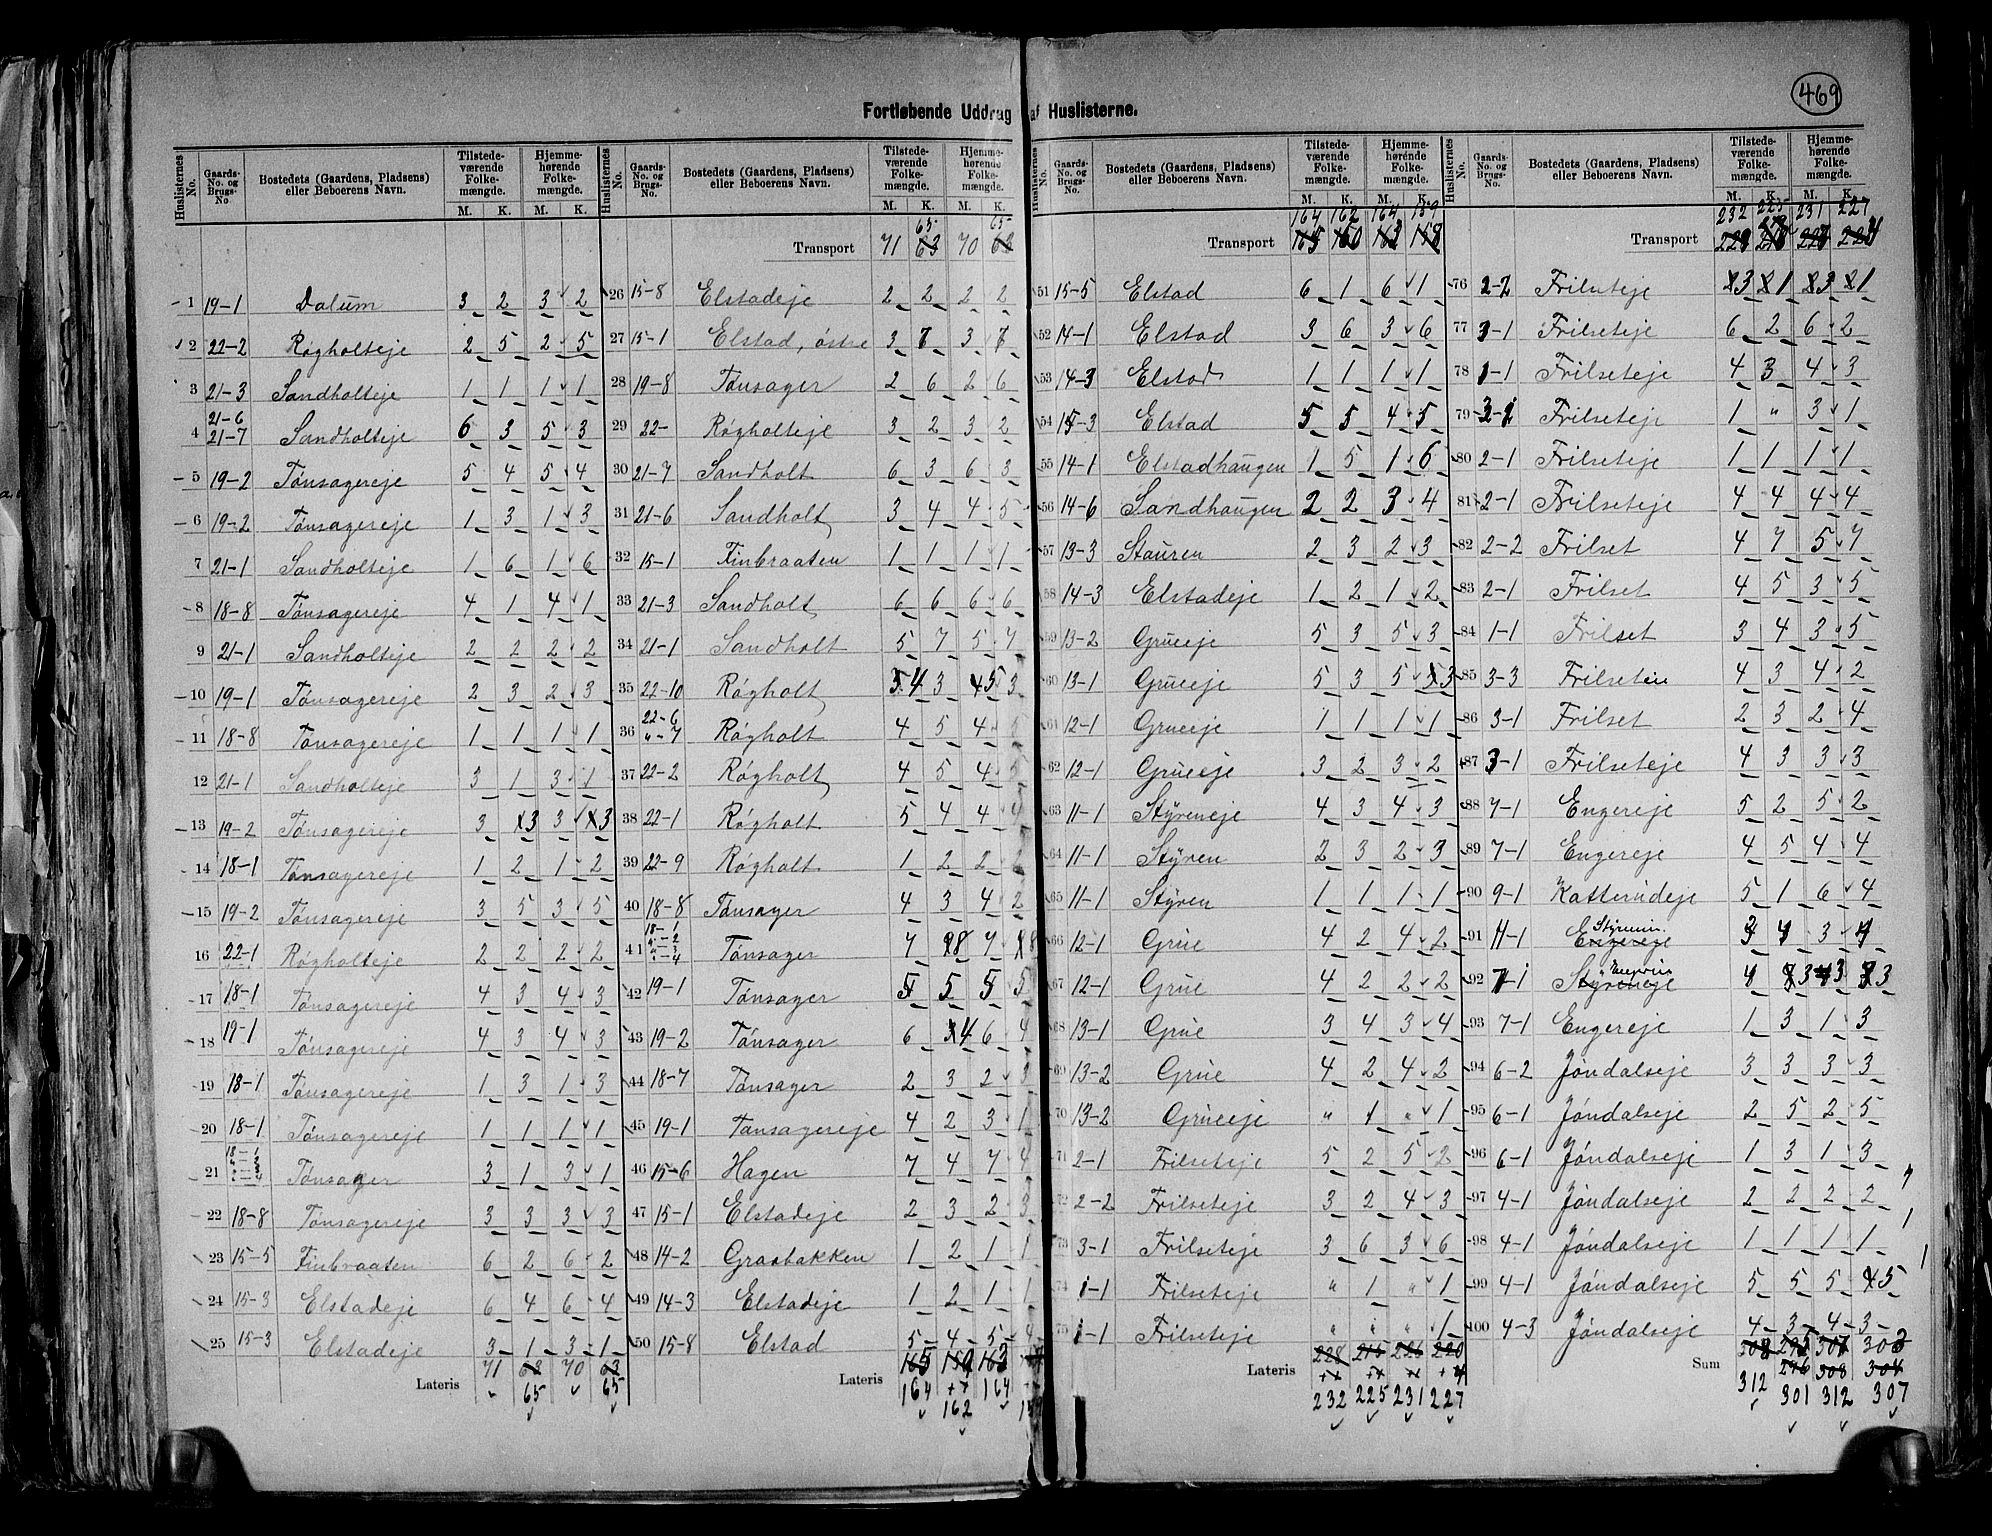 469
Fortløbende Uddrag af Huslisterne.
Huslisternes No. Gaards-No. og Brugs-No. Bostedets (Gaardens, Pladsens) eller Beboerens Navn. Tilstedeværende Folkemængde. M. K. Hjemmehørende Folkemængde. M. K.
1 19-1 Dalum 3 2 3 2
2 22-2 Røgholteje 2 5 2 5
3 21-3 Sandholteje 1 1 1 1
4 21-6 21-7 Sandholteje 6 3 5 3
5 19-2 Tønsagereje 5 4 5 4
6 19-2 Tønsagereje 1 3 1 3
7 21-1 Sandholteje 1 6 1 6
8 18-8 Tønsagereje 4 1 4 1
9 21-1 Sandholteje 2 2 2 2
10 19-1 Tønsagereje 2 3 2 3
11 18-8 Tønsagereje 1 1 1 1
12 21-1 Sandholteje 3 1 3 1
13 19-2 Tønsagereje 3 3 3 3
14 18-1 Tønsagereje 1 2 1 2
15 19-2 Tønsagereje 3 5 3 5
16 22-1 Røgholteje 2 2 2 2
17 18-1 Tønsagereje 4 3 4 3
18 19-1 Tønsagereje 4 3 4 3
19 18-1 Tønsagereje 1 3 1 3
20 18-1 Tønsagereje 1 1 1 1
21 18-1 "-2 "-3 "-4 Tønsager 3 1 3 1
22 18-8 Tønsagereje 3 3 3 3
23 15-5 Finbraaten 6 2 6 2
24 15-3 Elstadeje 6 4 6 4
25 15-3 Elstadeje 3 1 3 1
Lateris 71 65 70 65
Huslisternes No. Gaards-No. og Brugs-No. Bostedets (Gaardens, Pladsens) eller Beboerens Navn. Tilstedeværende Folkemængde. M. K. Hjemmehørende Folkemængde. M. K.
Transport 71 65 70 65
26 15-8 Elstadeje 2 2 2 2
27 15-1 Elstad, østre 3 7 3 7
28 19-8 Tønsager 2 6 2 6
29 22- Røgholteje 3 2 3 2
30 21-7 Sandholt 6 3 6 3
31 21-6 Sandholt 3 4 4 5
32 15-1 Finbraaten 1 1 1 1
33 21-3 Sandholt 6 6 6 6
34 21-1 Sandholt 5 7 5 7
35 22-10 Røgholt 4 3 5 3
36 22-6 "-7 Røgholt 4 5 4 5
37 22-2 Røgholt 4 5 4 5
38 22-1 Røgholt 5 4 4 4
39 22-9 Røgholt 1 2 2 2
40 18-8 Tønsager 4 3 4 2
41 18-1 "-2 "-3 "-4 Tønsager 7 8 7 8
42 19-1 Tønsager 5 5 5 5
43 19-2 Tønsager 6 4 6 4
44 18-7 Tønsager 2 3 2 3
45 19-1 Tønsagereje 4 2 3 1
46 15-6 Hagen 7 4 7 4
47 15-1 Elstadeje 2 3 2 3
48 14-2 Grasbakken 1 2 1 1
49 14-3 Elstadeje 1 2 1 1
50 15-8 Elstad 5 4 5 4
Lateris 165 159 163
164 ++ 164
162
Huslisternes No. Gaards-No. og Brugs-No. Bostedets (Gaardens, Pladsens) eller Beboerens Navn. Tilstedeværende Folkemængde. M. K. Hjemmehørende Folkemængde. M. K.
164 162 164 159
Transport 165 160 163 158
51 15-5 Elstad 6 1 6 1
52 14-1 Elstad 3 6 3 6
53 14-3 Elstad 1 1 1 1
54 15-3 Elstad 5 5 4 5
55 14-1 Elstadhaugen 1 5 1 6
56 14-6 Sandhaugen 2 2 3 4
57 13-3 Stauren 2 3 2 3
58 14-3 Elstadeje 1 2 1 2
59 13-2 Grueeje 5 3 5 3
60 13-1 Grueeje 5 3 5 3
61 12-1 Grueeje 1 1 1 1
62 12-1 Grueeje 3 2 3 2
63 11-1 Styreneje 4 3 4 3
64 11-1 Styren 2 3 2 3
65 11-1 Styren 1 1 1 1
66 12-1 Grue 4 2 4 2
67 12-1 Grue 4 2 2 2
68 13-1 Grue 3 4 3 4
69 13-2 Grue 4 2 4 2
70 13-2 Grueeje " 1 " 1
71 2-1 Frilseteje 5 2 5 2
72 2-2 Frilseteje 3 2 4 3
73 3-1 Frilseteje 3 6 3 6
74 1-1 Frilseteje " 1 " 1
75 1-1 Frilseteje " " " 1
Lateris 228 215 226 220
232 225 231 227
Huslisternes No. Gaards-No. og Brugs-No. Bostedets (Gaardens, Pladsens) eller Beboerens Navn. Tilstedeværende Folkemængde. M. K. Hjemmehørende Folkemængde. M. K.
232 225 231 227
Transport
76 2-2 Frilseteje 3 1 3 1
77 3-1 Frilseteje 6 2 6 2
78 1-1 Frilseteje 4 3 4 3
79 Frilseteje 1 " 3 1
80 2-1 Frilseteje 1 1 1 1
81 2-1 Frilseteje 4 4 4 4
82 2-2 Frilset 4 7 5 7
83 2-1 Frilset 4 5 3 5
84 1-1 Frilset 3 4 3 5
85 3-3 Frilseteie 4 3 4 2
86 3-1 Frilset 2 3 2 4
87 3-1 Frilseteje 4 3 3 3
88 7-1 Engereje 5 2 5 2
89 7-1 Engereje 4 5 4 4
90 9-1 Katterudeje 5 1 6 4
91 11-1 Engereje 3 4 3 4
92 7-1 Styreneje 4 3 3 3
93 7-1 Engereje 1 3 1 3
94 6-2 Jøndalseje 3 3 3 3
95 6-1 Jøndalseje 2 5 2 5
96 6-1 Jøndalseje 1 3 1 3
97 4-1 Jøndalseje 2 2 2 2
98 4-1 Jøndalseje 1 1 1 1
99 4-1 Jøndalseje 5 5 5 5
100 4-3 Jøndalseje 4 3 4 3
Sum 296 308 304
312 301 312 307